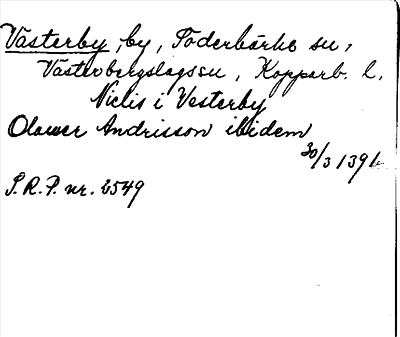 Västerby, by, Söderbärke sn,
Västerbergslags sn, Kopparb. l.
Niclis i Vesterby
Olawer Andrisson ibidem
30/3 139
S.R.P. nr. 2549